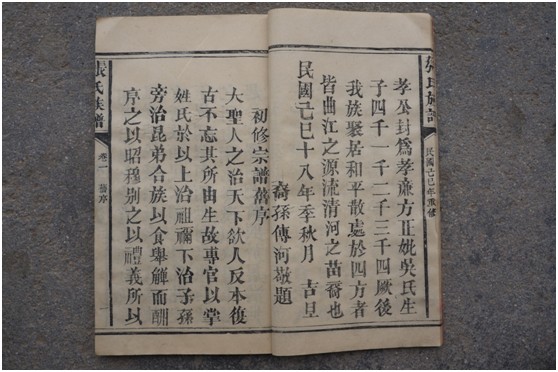 張氏族譜 民國己巳年重修
孝公封爲孝廉方正妣吳氏生
子四千一千二千三千四厥後
我族聚居和平散處於四方者
皆曲江之源流清河之苗裔也
民國己巳十八年季秋月 吉旦
裔孫傳河敬題
初修宗譜舊序
大聖人之治天下欲人反本復
古不忘其所由生故專官以掌
姓氏於以上治祖禰下治子孫
旁治昆弟合族以食舉觶而酬
序之以昭穆別之以禮義所以
張氏族譜 卷一 舊序 一